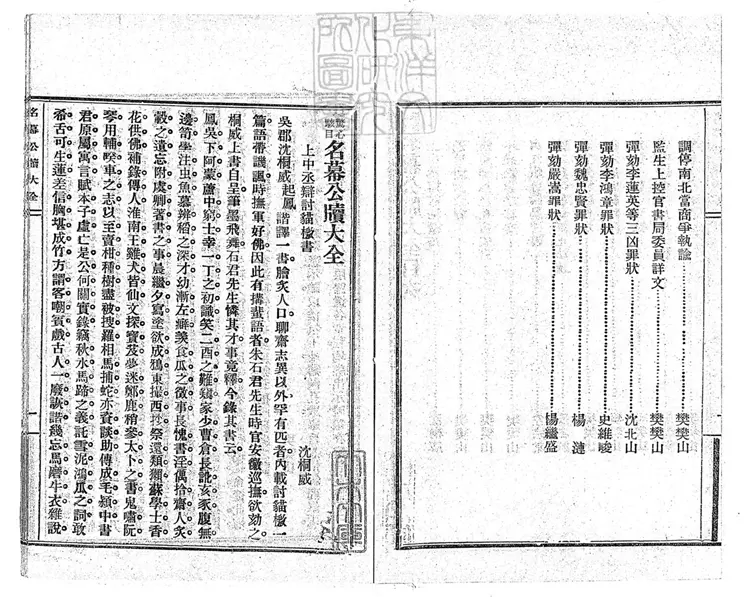 調停南北當商爭執諭……樊樊山
監生上控官書局委員詳文……樊樊山
彈劾李蓮英等三凶罪狀……沈北山
彈劾李鴻章罪狀……史維峻
彈劾魏忠賢罪狀……楊漣
彈劾嚴嵩罪狀……楊繼盛
驚心駭目名幕公牘大全
上中丞辯討貓檄書
沈桐威
吳郡沈桐威起鳳諧譯一書膾炙人口聊齋志異以外罕有匹者內載討貓檄一
篇語帶譏諷時撫軍好佛因此有搆蜚語者朱石君先生時官安徽巡撫欲劾之
桐威上書自呈筆墨飛舞石君先生憐其才事竟釋今錄其書云
鳳吳下阿蒙蘆中窮士幸一丁之初識笑二酉之難穮家少曹倉長訛亥豕腹無
邊笥學注虫魚慕辨稻之深才幼漸左癖羙食瓜之徵事長愧書淫偶拾齋人炙
轂之遺忘附虞卿著書之事晨繼夕寫塗欲成鴉東撮西抄祭還類獺蘇學士香
花供佛補錄傳人淮南王雞犬皆仙文探寶笈夢迷鄭鹿稍參太卜之書鬼嘯阮
琴用輔睽車之志以至賣柑種樹盡被搜羅相馬捕蛇亦資談助傳成毛潁中書
君原屬寓言賦本子虛亡是公何關實錄竊秋水馬蹄之義託雪泥鴻瓜之詞敢
希舌可生蓮差信胸堪成竹方謂客嘲賓戲古人一廢詼諧幾忘馬磨牛衣雜說
名幕公牘大全
一